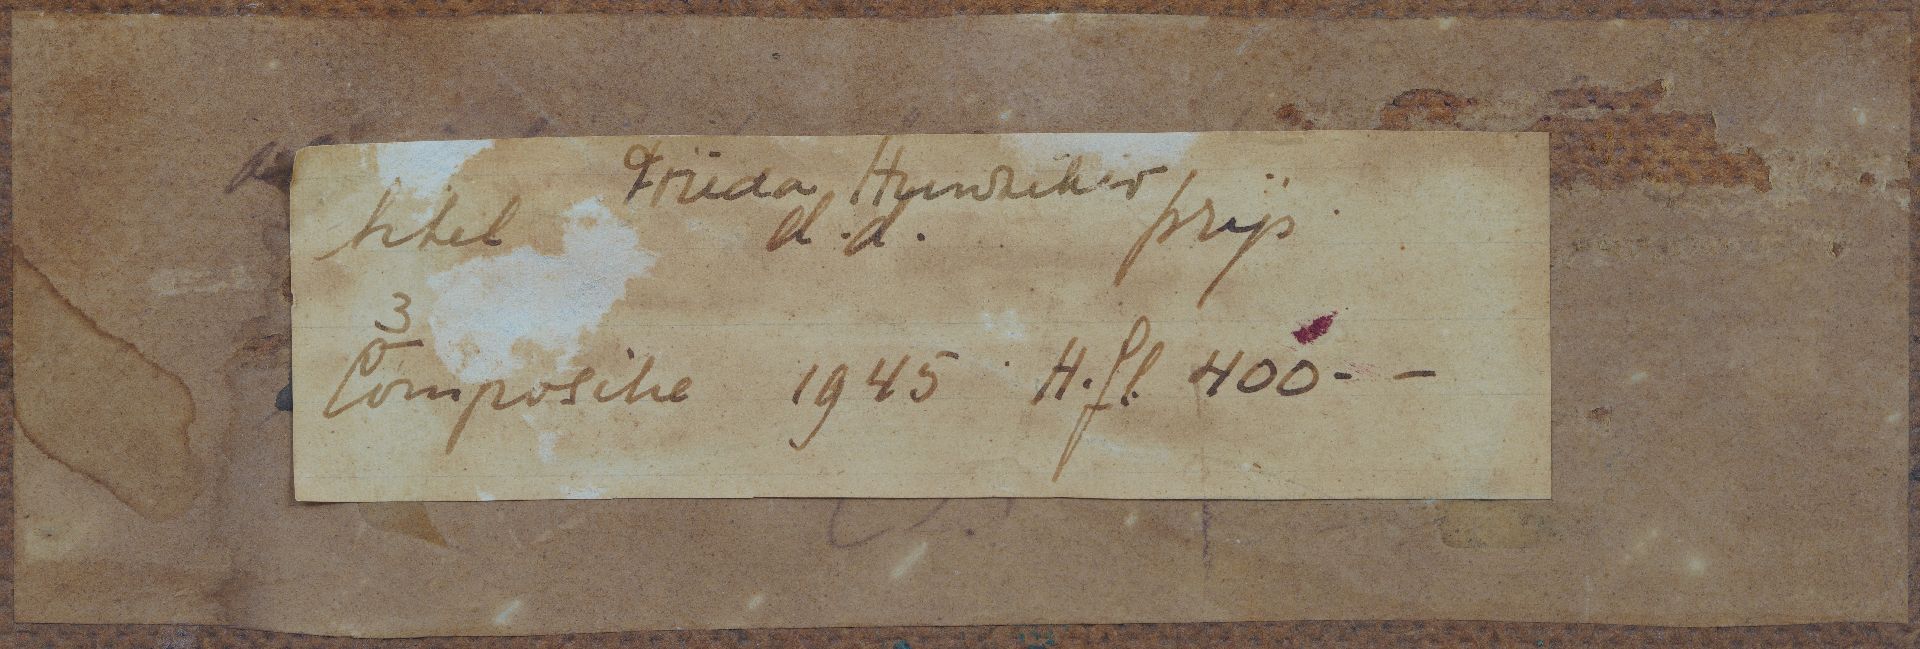 Frieda Hunziker
titel d.d. prijs
3
Compositie 1945 H.fl. 400 - -